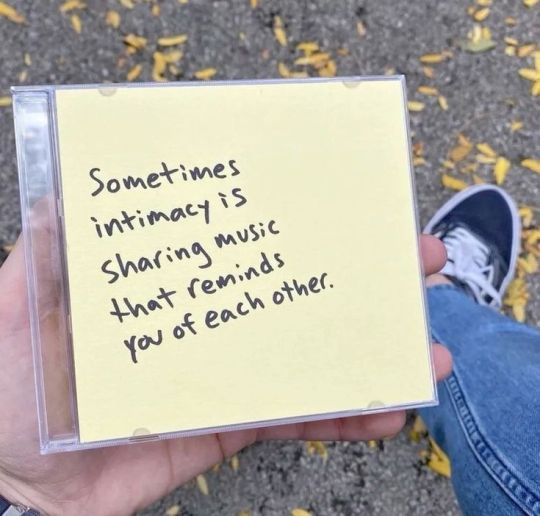 Sometimes
intimacy is
sharing music
that reminds
you of each other.